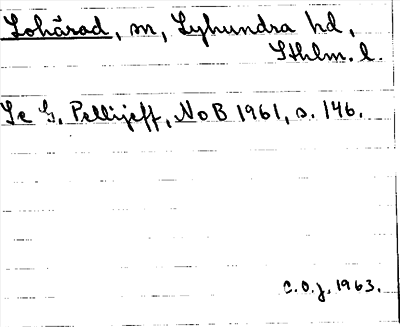 Lohärad, sn, Lyhundra hd,
Sthlm. l.
Se G. Pellijeff, NoB 1961, s. 146.
C.O.J. 1963.